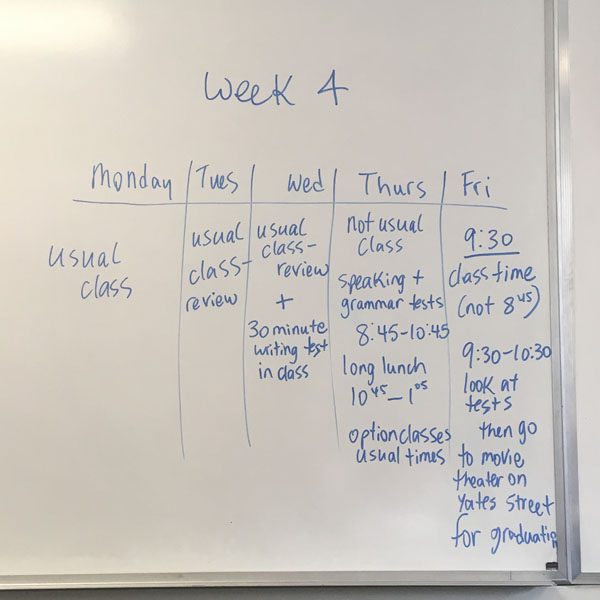 Week 4
Monday Tues Wed Thurs Fri
usual
class
usual
class-
review
usual
class-
review
+
30 minute
writing test
in class
not usual
class
speaking +
grammar tests
8:45-10:45
long lunch
10 45 - 1 05
option classes
usual times
9:30
class time
(not 8 45)
9:30-10:30
look at
tests
then go
to movie
theater on
Yates Street
for graduatin